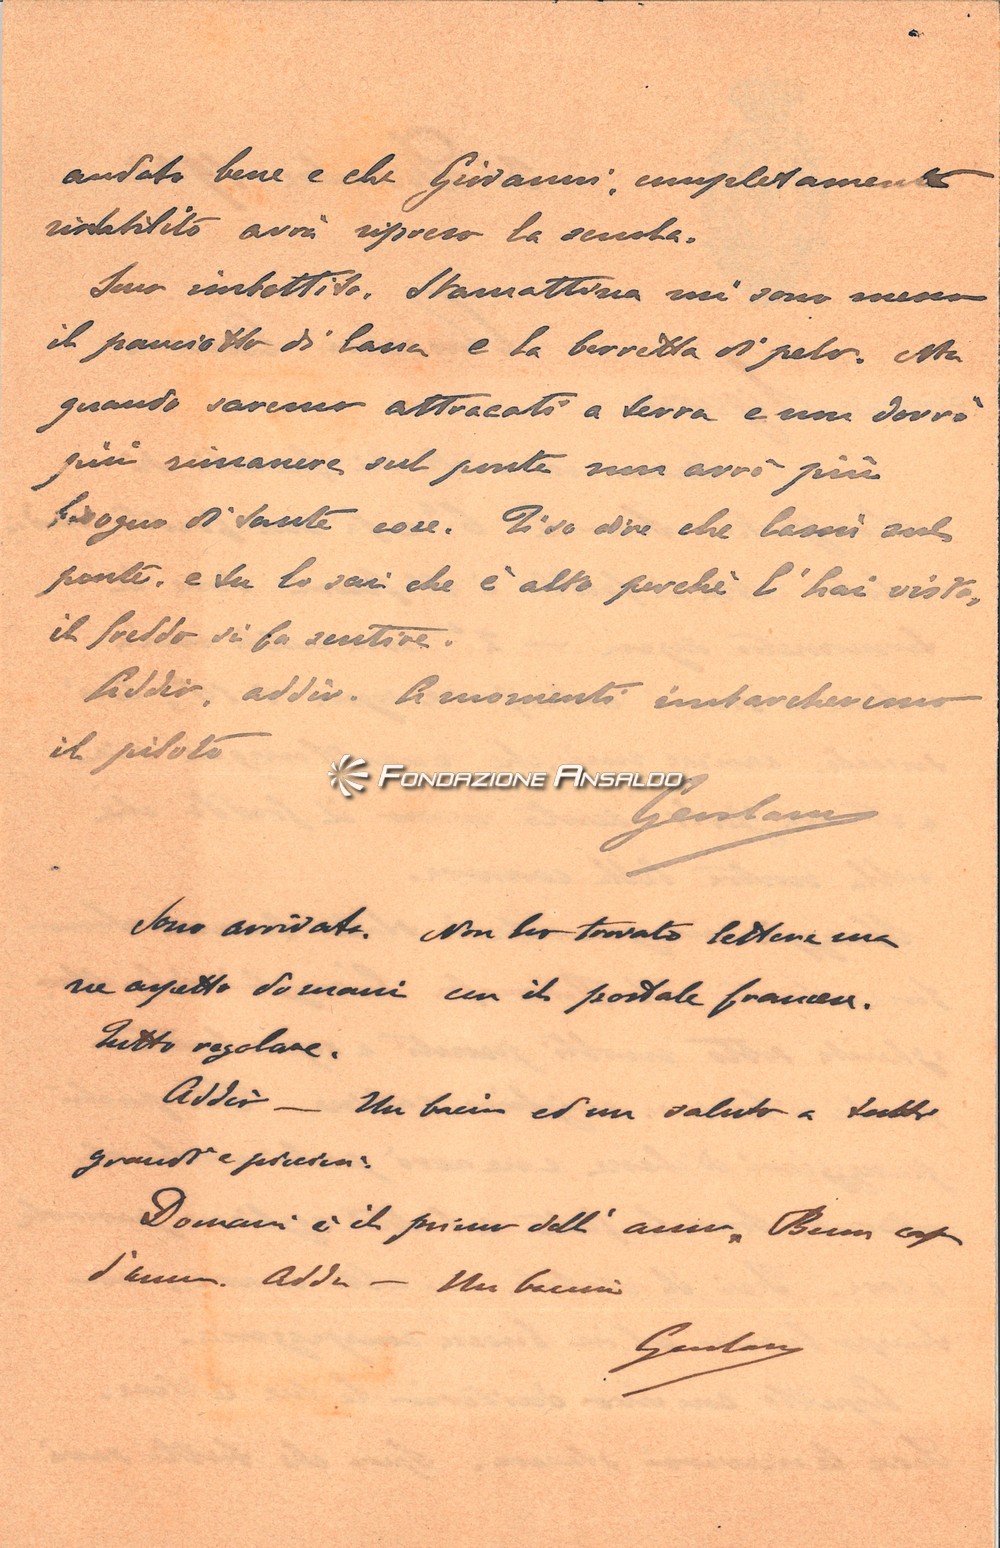 andato bene e che Giovanni, completamente
ristabilito avrà ripreso la scuola.
Sono imbottito. Stamattina mi sono messo
il panciotto di lana e la berretta di pelo. Ma
quando saremo attraccati a terra e non dovrò
più rimanere sul ponte non avrò più
bisogno di tante cose. Ti so dire che lassù sul
ponte, e tu lo sai che è alto perchè l'hai visto,
il freddo si fa sentire.
Addio, addio. A momenti imbarcheremo
il pilota
FONDAZIONE ANSALDO
Gerolamo
Sono arrivato. Non ho trovato lettere ma
ne aspetto domani con il postale francese.
Tutto regolare.
Addio — Un bacio ed un saluto a tutti
grandi e piccini.
Domani è il primo dell'anno. Buon capo
d'anno. Addio — Un bacio
Gerolamo